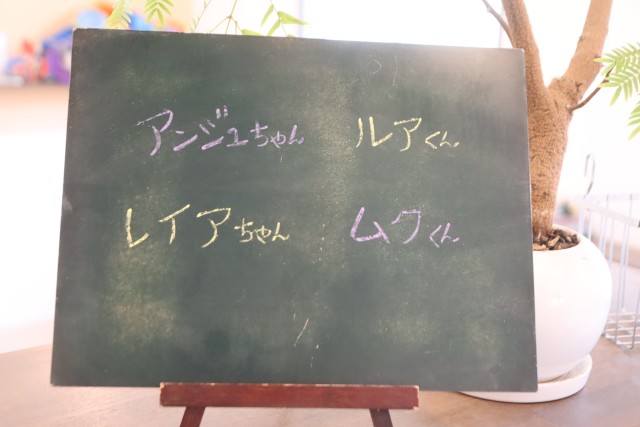 アンジュちゃん ルアくん
レイアちゃん ムクくん